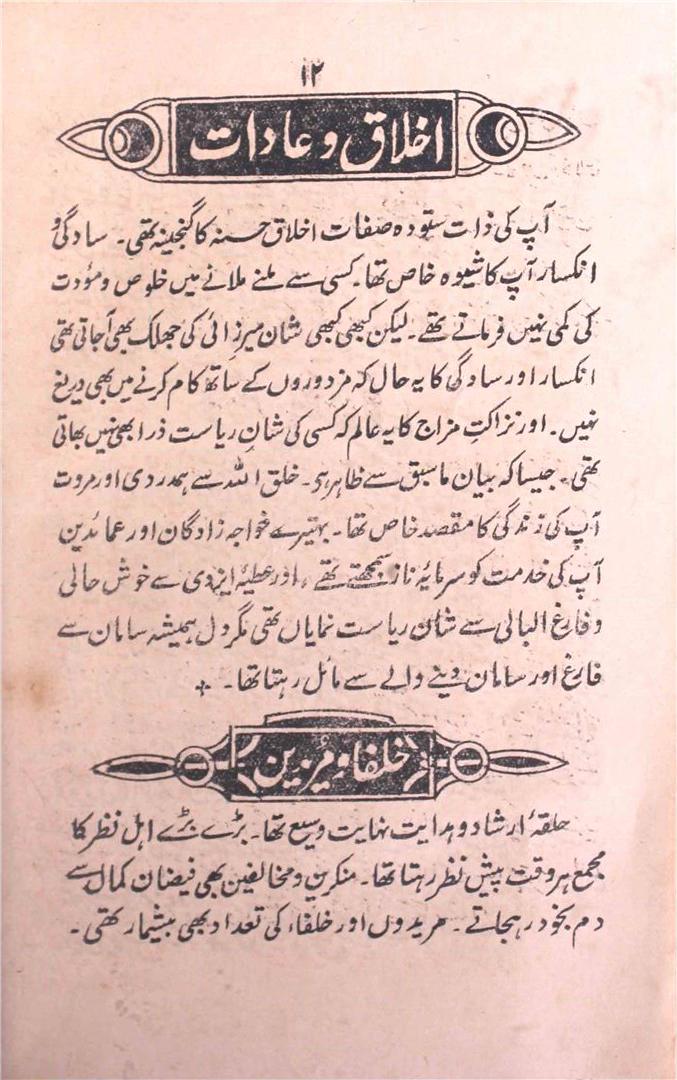 ۱۲
اخلاق و عادات
آپ کی ذات ستودہ صفات اخلاق حسنہ کا گنجینہ تھی۔ سادگی و
انکسار آپ کا شیوہ خاص تھا۔ کسی سے ملنے ملانے میں خلوص و مؤدت
کی کمی نہیں فرماتے تھے۔ لیکن کبھی کبھی شان میرزائی کی جھلک بھی آجاتی تھی
انکسار اور سادگی کا یہ حال کہ مزدوروں کے ساتھ کام کرنے میں بھی دریغ
نہیں۔ اور نزاکتِ مزاج کا یہ عالم کہ کسی کی شانِ ریاست ذرا بھی نہیں بھاتی
تھی۔ جیسا کہ بیان ماسبق سے ظاہر ہو۔ خلق اللہ سے ہمدردی اور مروت
آپ کی زندگی کا مقصد خاص تھا۔ بہتیرے خواجہ زادگان اور عمائدین
آپ کی خدمت کو سرمایۂ ناز سمجھتے تھے، اور عطیۂ ایزدی سے خوش حالی
و فارغ البالی سے شان ریاست نمایاں تھی مگر دل ہمیشہ سامان سے
فارغ اور سامان دینے والے سے مائل رہتا تھا۔
خلفا و مریدین
حلقۂ ارشاد و ہدایت نہایت وسیع تھا۔ بڑے بڑے اہل نظر کا
مجمع ہر وقت پیش نظر رہتا تھا۔ منکرین و مخالفین بھی فیضان کمال سے
دم بخود رہجاتے۔ مریدوں اور خلفاء کی تعداد بھی بیشمار تھی۔